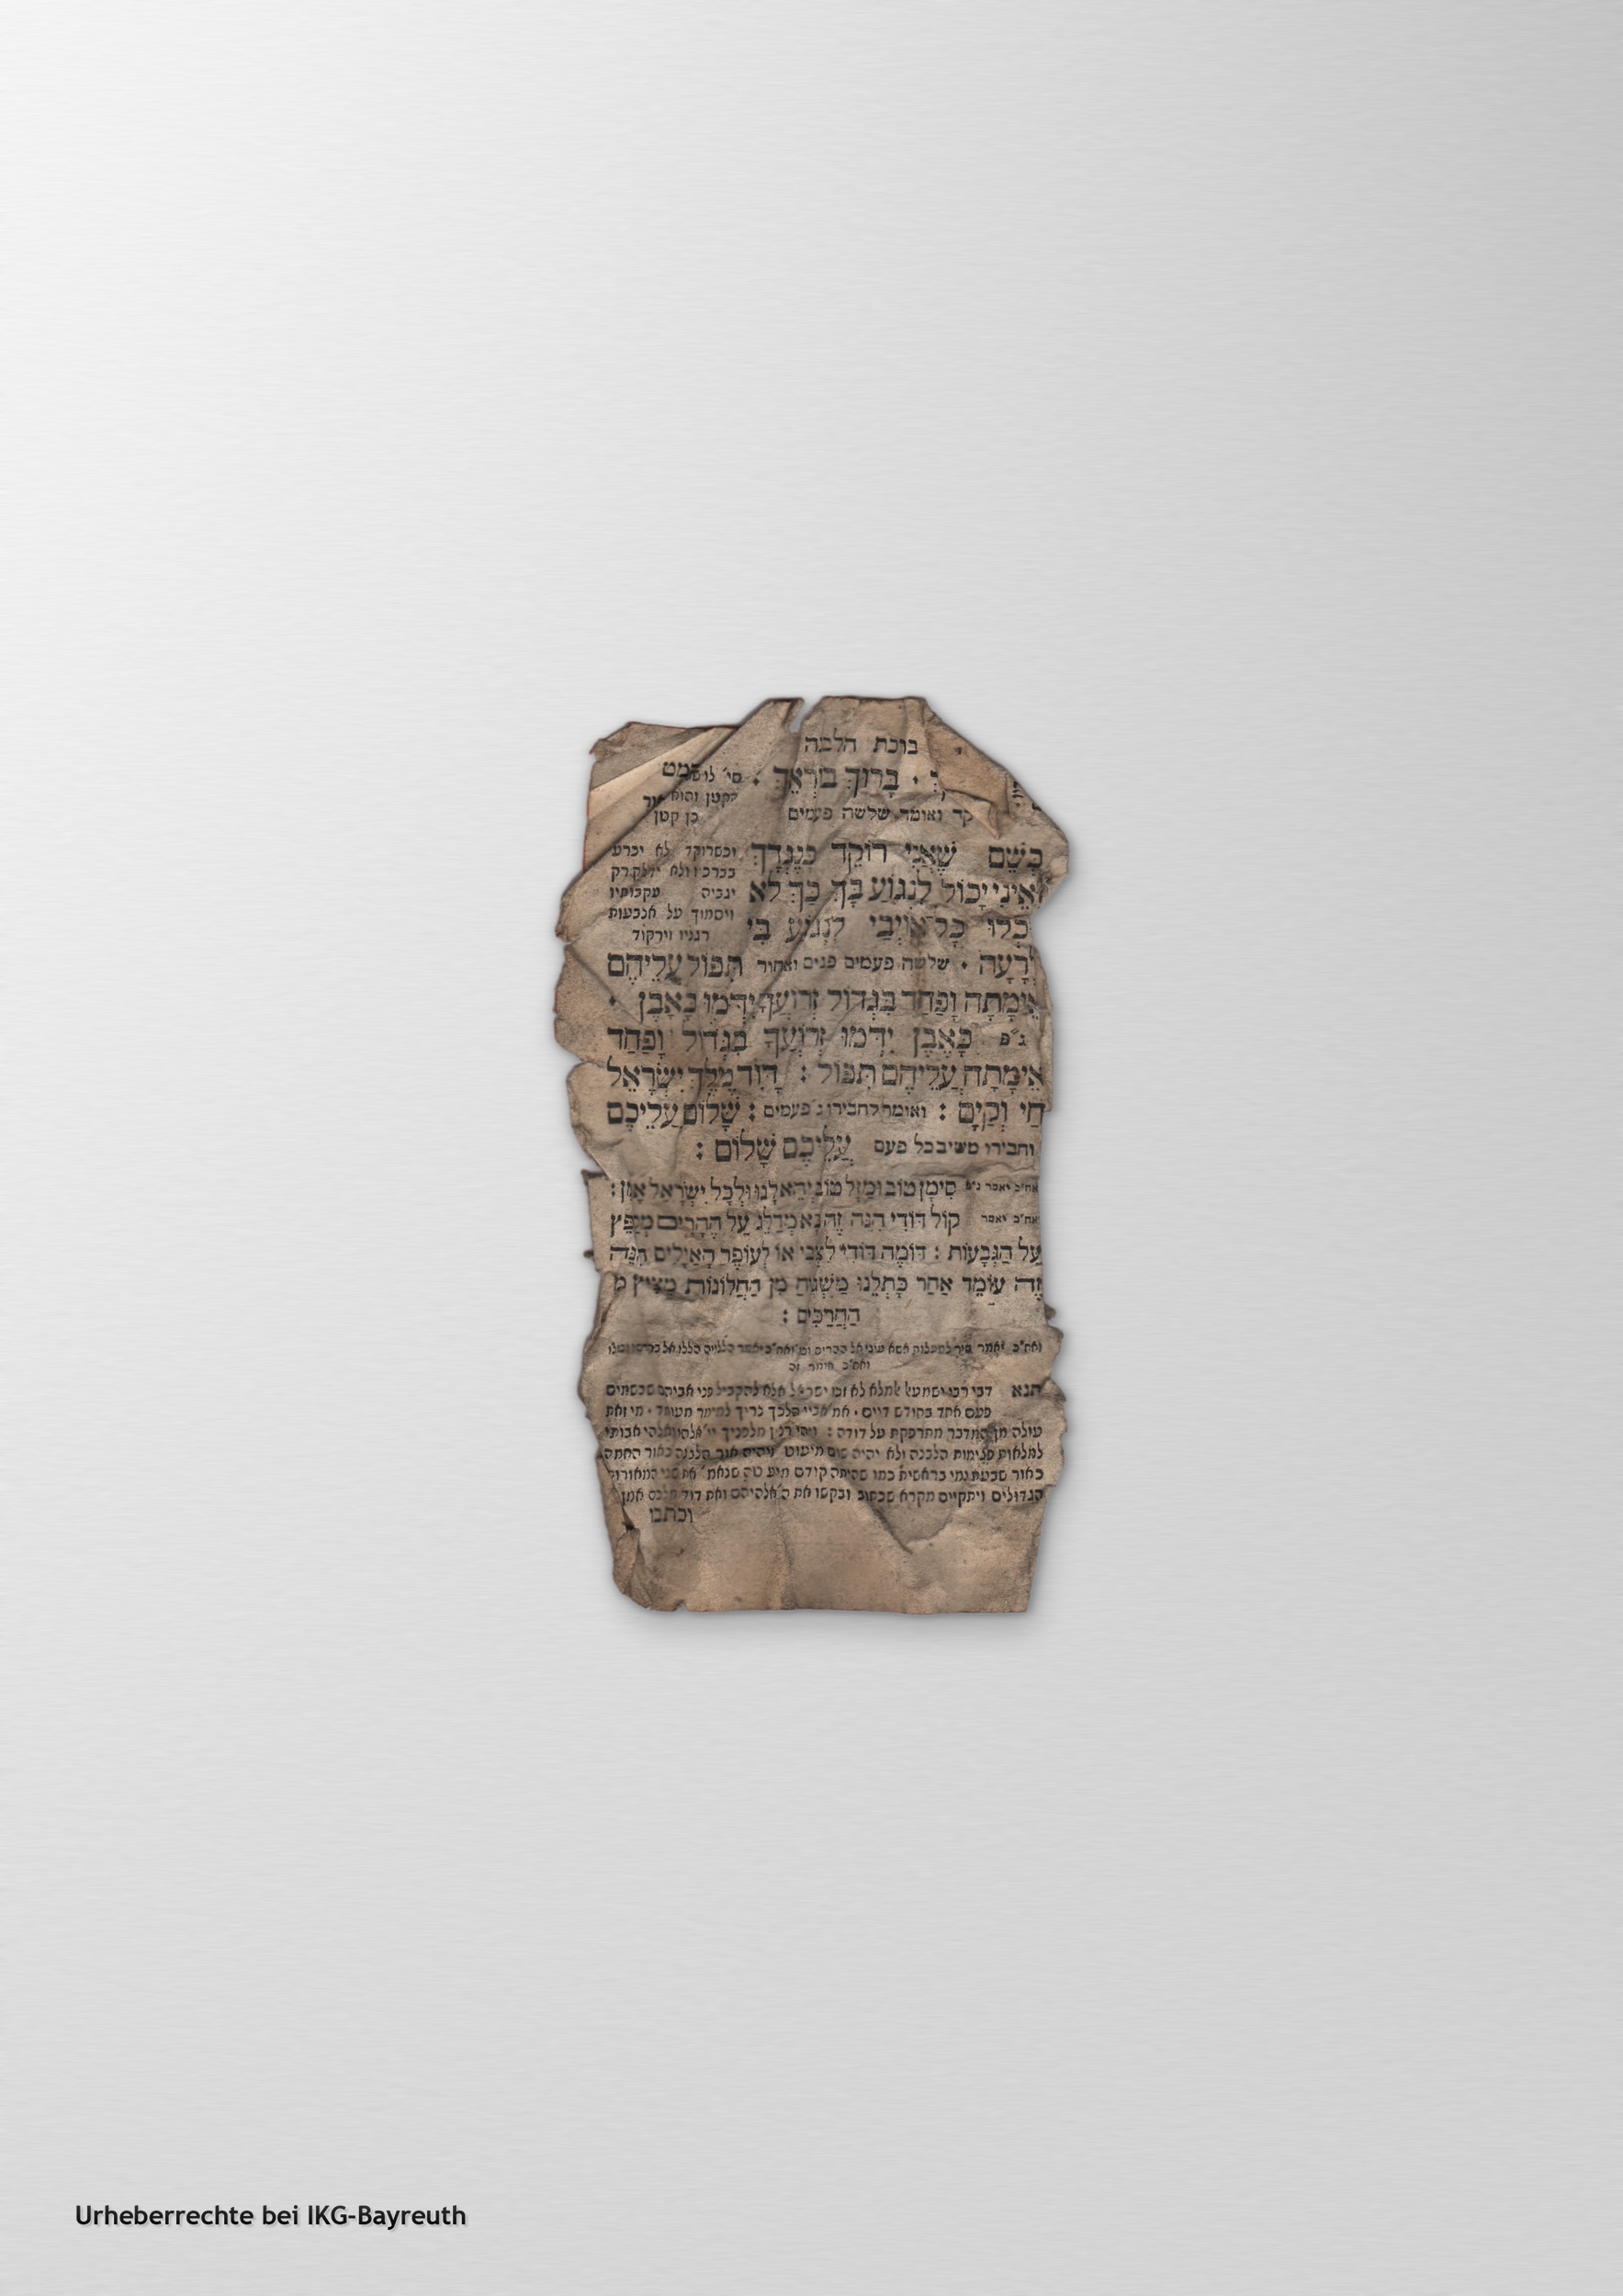 ברכת הלבנה
ברוך בוראך : סי׳
קד ואומר שלשה פעמים
כן קטן
כְּשֵׁם שֶׁאֲנִי רוֹקֵד כְּנֶגְדָּךְ
וכשרוקד לא יכרע
וְאֵינִי יָכוֹל לִנְגּוֹעַ בָּךְ כַּךְ לֹא
בברכיו ולא ידלק רק
יגביה עקבותיו
יִכְלוּ כָּל אוֹיְבַי לִנְגּוֹעַ בִּי
ויסמוך על אצבעות
רגליו וירקוד
לְרָעָה · שלשה פעמים פנים ואחור תִּפּוֹל עֲלֵיהֶם
אֵימָתָה וָפַחַד בִּגְדוֹל זְרוֹעֲךָ יִדְּמוּ כָּאָבֶן ·
ג״פ כָּאֶבֶן יִדְּמוּ זְרוֹעֲךָ בִּגְדוֹל וָפַחַד
אֵימָתָה עֲלֵיהֶם תִּפּוֹל : דָּוִד מֶלֶךְ יִשְׂרָאֵל
חַי וְקַיָּם : ואומר לחבירו ג׳ פעמים : שָׁלוֹם עֲלֵיכֶם
וחבירו משיב בכל פעם עֲלֵיכֶם שָׁלוֹם :
אח״כ יאמר ג״פ סִימָן טוֹב וּמַזָּל טוֹב יְהֵא לָנוּ וּלְכָל יִשְׂרָאֵל אָמֵן :
ואח״כ יאמר קוֹל דּוֹדִי הִנֵּה זֶה בָּא מְדַלֵּג עַל הֶהָרִים מְקַפֵּץ
עַל הַגְּבָעוֹת : דּוֹמֶה דוֹדִי לִצְבִי אוֹ לְעוֹפֶר הָאַיָּלִים הִנֵּה
זֶה עוֹמֵד אַחַר כָּתְלֵנוּ מַשְׁגִּיחַ מִן הַחֲלוֹנוֹת מֵצִיץ מ
הַחֲרַכִּים :
ואח״כ יאמר שיר למעלות אשא עיני אל ההרים וכו׳ ואח״כ יאמר הללויה הללו אל בקדשו וכולו
ואח״כ אומר זה
תנא דבי רבי ישמעאל אלמלא לא זכו ישראל אלא להקביל פני אביהם שבשמים
פעם אחד בחודש דיים · אמ׳ אביי הלכך צריך למימר מעומד · מי זאת
עולה מן המדבר מתרפקת על דודה : ויהי רצון מלפניך יי׳ אלהי ואלהי אבותי
למלאות פגימות הלבנה ולא יהיה שום מיעוט ויהיה אור הלבנה כאור החמה
כאור שבעת ימי בראשית כמו שהיתה קודם מיעוטה שנאמ׳ את שני המאורות
הגדולים ויתקיים מקרא שכתוב ובקשו את ה׳ אלהיהם ואת דוד מלכם אמן
וכתבו
Urheberrechte bei IKG-Bayreuth